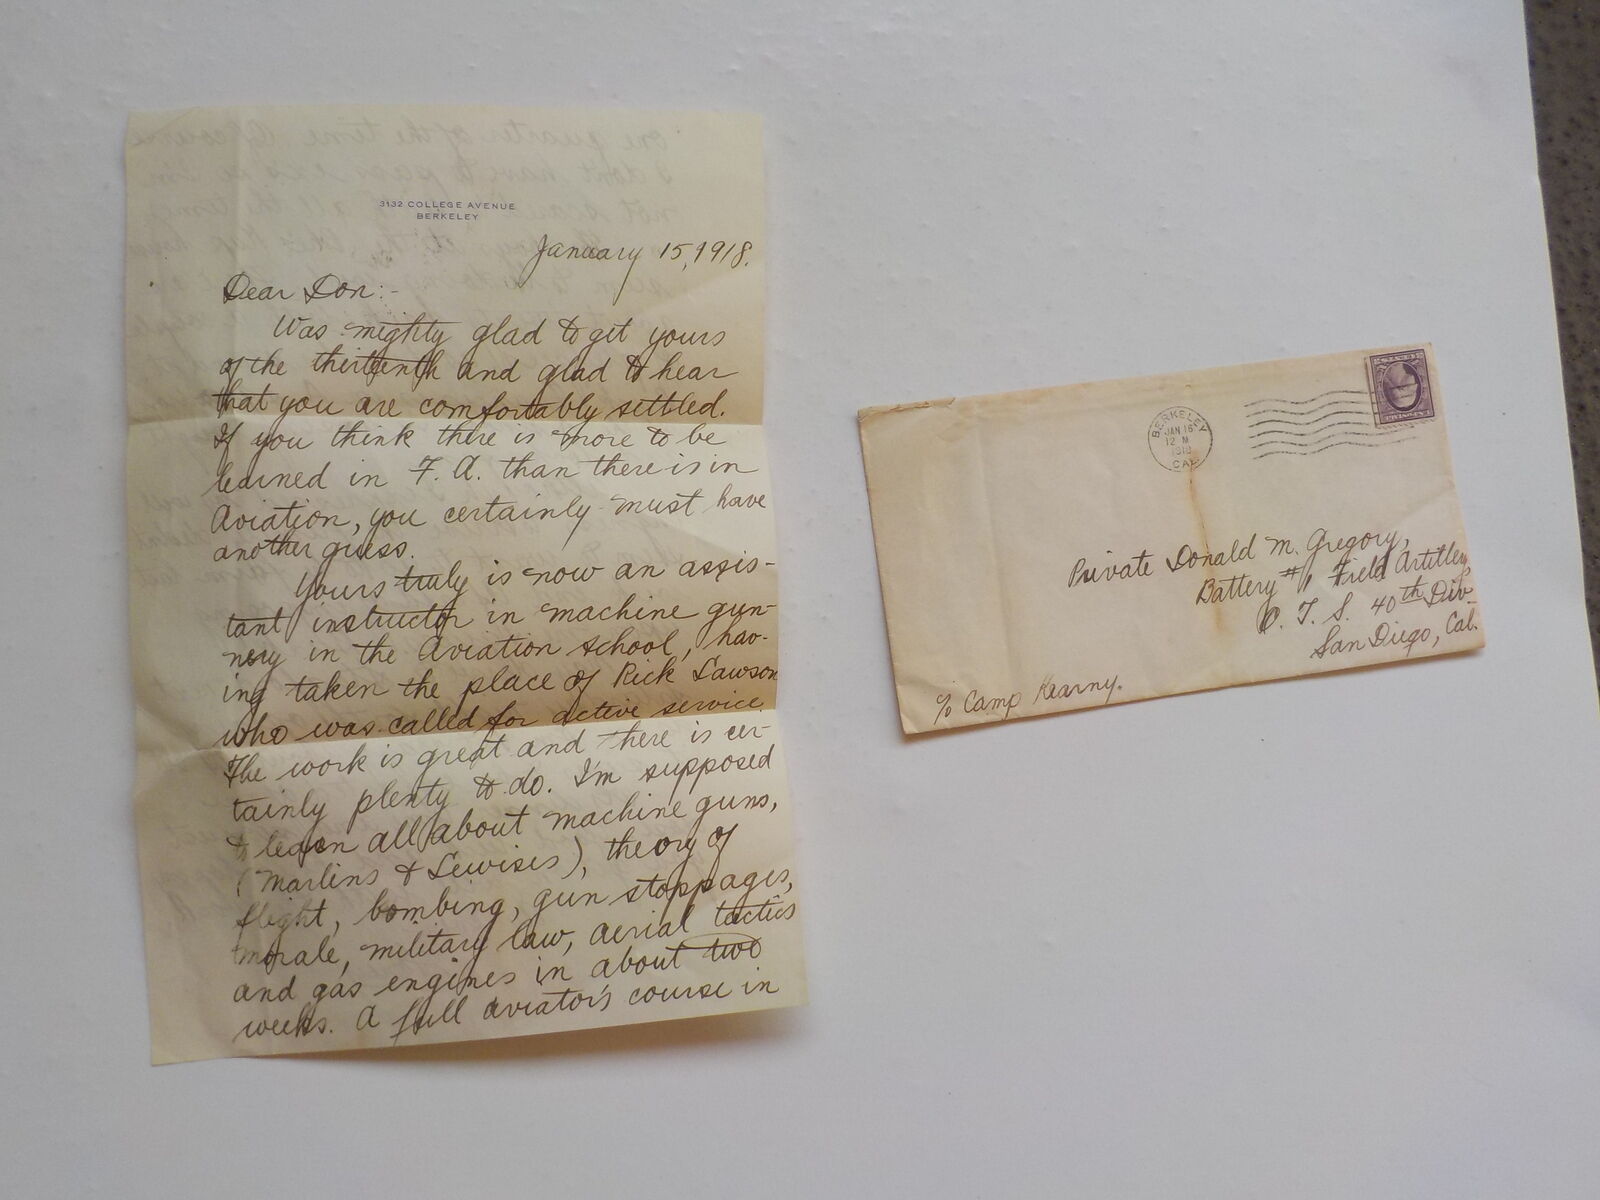 3132 COLLEGE AVENUE
BERKELEY
January 15, 1918.
Dear Don:-
Was mighty glad to get yours
of the thirteenth and glad to hear
that you are comfortably settled.
If you think there is more to be
learned in F. A. than there is in
Aviation, you certainly must have
another guess.
Yours truly is now an assis-
tant instructor in machine gun-
nery in the Aviation School, hav-
ing taken the place of Rick Lawson
who was called for active service
The work is great and there is cer-
tainly plenty to do. I'm supposed
to learn all about machine guns,
(Marlins & Lewises), theory of
flight, bombing, gun stoppages,
morale, military law, aerial tactics
and gas engines in about two
weeks. A full aviator's course in
BERKELEY
JAN 16
12 M
1918
CAL.
Private Donald M. Gregory,
Battery #1 Field Artillery
O. T. S. 40th Div
San Diego, Cal.
c/o Camp Kearny.